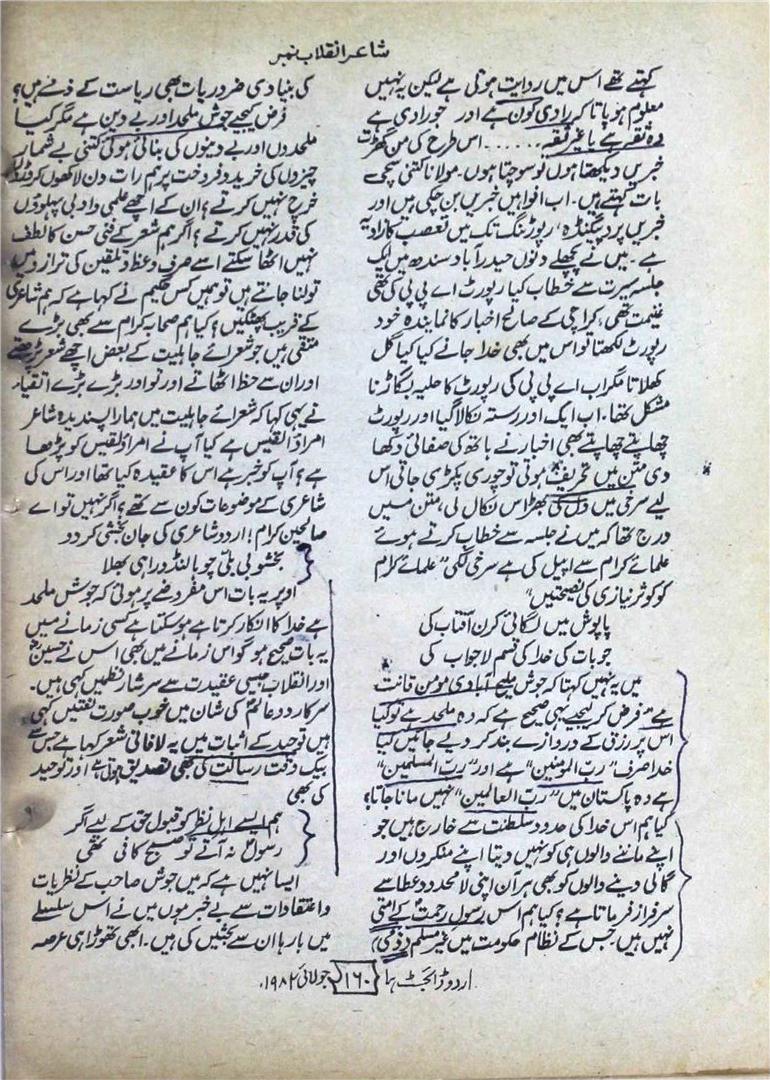 شاعر انقلاب نمبر
کہتے تھے اس میں روایت ہوتی ہے لیکن یہ نہیں
معلوم ہو پاتا کہ راوی کون ہے اور خود راوی ہے
وہ ثقہ ہے یا غیر ثقہ ...... اس طرح کی من گھڑت
خبریں دیکھتا ہوں تو سوچتا ہوں۔ مولانا کتنی سچی
بات کہتے ہیں۔ اب افواہیں خبریں بن چکی ہیں اور
خبریں پروپیگنڈہ، رپورٹنگ تک میں تعصب کا زاویہ
ہے۔ میں نے پچھلے دنوں حیدرآباد سندھ میں ایک
جلسہ سیرت سے خطاب کیا رپورٹ اے پی پی کی تھی
غنیمت تھی، کراچی کے صالح اخبار کا نمایندہ خود
رپورٹ لکھتا تو اس میں بھی خدا جانے کیا کیا گل
کھلاتا مگر اب اے پی پی کی رپورٹ کا حلیہ بگاڑنا
مشکل تھا۔ اب ایک اور رستہ نکالا گیا اور رپورٹ
چھاپتے چھاپتے بھی اخبار نے ہاتھ کی صفائی دکھا
دی متن میں تحریف ہوتی تو چوری پکڑی جاتی اس
لیے سرخی میں دل کی بھڑاس نکال لی، متن میں
درج تھا کہ میں نے جلسہ سے خطاب کرتے ہوئے
علمائے کرام سے اپیل کی ہے سرخی لگی "علمائے کرام
کو کوثر نیازی کی نصیحتیں"
پاپوش میں لگائی کرن آفتاب کی
جو بات کی خدا کی قسم لاجواب کی
میں یہ نہیں کہتا کہ جوش ملیح آبادی مومن قانت
ہے" فرض کر لیجیے یہی صحیح ہے کہ وہ ملحد ہے تو کیا
اس پر رزق کے دروازے بند کر دیے جائیں کیا
خدا صرف "رب المومنین" ہے اور "رب المسلمین"
ہے وہ پاکستان میں "رب العالمین" نہیں مانا جاتا؟
کیا ہم اس خدا کی حدود سلطنت سے خارج ہیں جو
اپنے ماننے والوں ہی کو نہیں دیتا اپنے منکروں اور
گالی دینے والوں کو بھی ہر آن اپنی لامحدود عطا سے
سرفراز فرماتا ہے؟ کیا ہم اس رسول رحمت کے امتی
نہیں ہیں جس کے نظام حکومت میں غیر مسلم (ذمی)
کی بنیادی ضروریات بھی ریاست کے ذمے ہیں؟
فرض کیجیے جوش ملحد اور بے دین ہے مگر کیا
ملحدوں اور بے دینوں کی بنائی ہوئی کتنی بے شمار
چیزوں کی خرید و فروخت پر ہم رات دن لاکھوں کروڑوں
خرچ نہیں کرتے؟ ان کے اچھے علمی و ادبی پہلوؤں
کی قدر نہیں کرتے؟ اگر ہم شعر کے فنی حسن کا لطف
نہیں اٹھا سکتے اسے صرف وعظ و تلقین کی ترازو میں
تولنا جانتے ہیں تو ہمیں کس حکیم نے کہا ہے کہ ہم شاعری
کے قریب پھٹکیں؟ کیا ہم صحابہ کرام سے بھی بڑے
متقی ہیں جو شعرائے جاہلیت کے بعض اچھے شعر پڑھتے
اور ان سے حظ اٹھاتے اور تو اور بڑے بڑے اتقیاء
نے یہی کہا کہ شعرائے جاہلیت میں ہمارا پسندیدہ شاعر
امراؤ القیس ہے کیا آپ نے امراؤ القیس کو پڑھا
ہے؟ آپ کو خبر ہے اس کا عقیدہ کیا تھا اور اس کی
شاعری کے موضوعات کون سے تھے؟ اگر نہیں تو اے
صالحین کرام! اردو شاعری کی جان بخشی کر دو
بخشو بی بلی چوہا لنڈورا ہی بھلا
اوپر یہ بات اس مفروضے پر ہوئی کہ جوش ملحد
ہے خدا کا انکار کرتا ہے ہو سکتا ہے کسی زمانے میں
یہ بات صحیح ہو گو اس زمانے میں بھی اس نے حسینؓ
اور انقلاب جیسی عقیدت سے سرشار نظمیں کہی ہیں۔
سرکار دو عالمؐ کی شان میں خوب صورت نعتیں کہی
ہیں توحید کے اثبات میں یہ لافانی شعر کہا ہے جس سے
بیک وقت رسالت کی بھی تصدیق ہوتی ہے اور توحید
کی بھی
ہم ایسے اہل نظر کو قبول حق کے لیے اگر
رسولؐ نہ آتے تو صبح کافی تھی
ایسا نہیں ہے کہ میں جوش صاحب کے نظریات
و اعتقادات سے بے خبر ہوں میں نے اس سلسلے
میں بارہا ان سے بحثیں کی ہیں۔ ابھی تھوڑا ہی عرصہ
اردو ڈائجسٹ ہما ۱۶۰ جولائی ۱۹۸۲ء